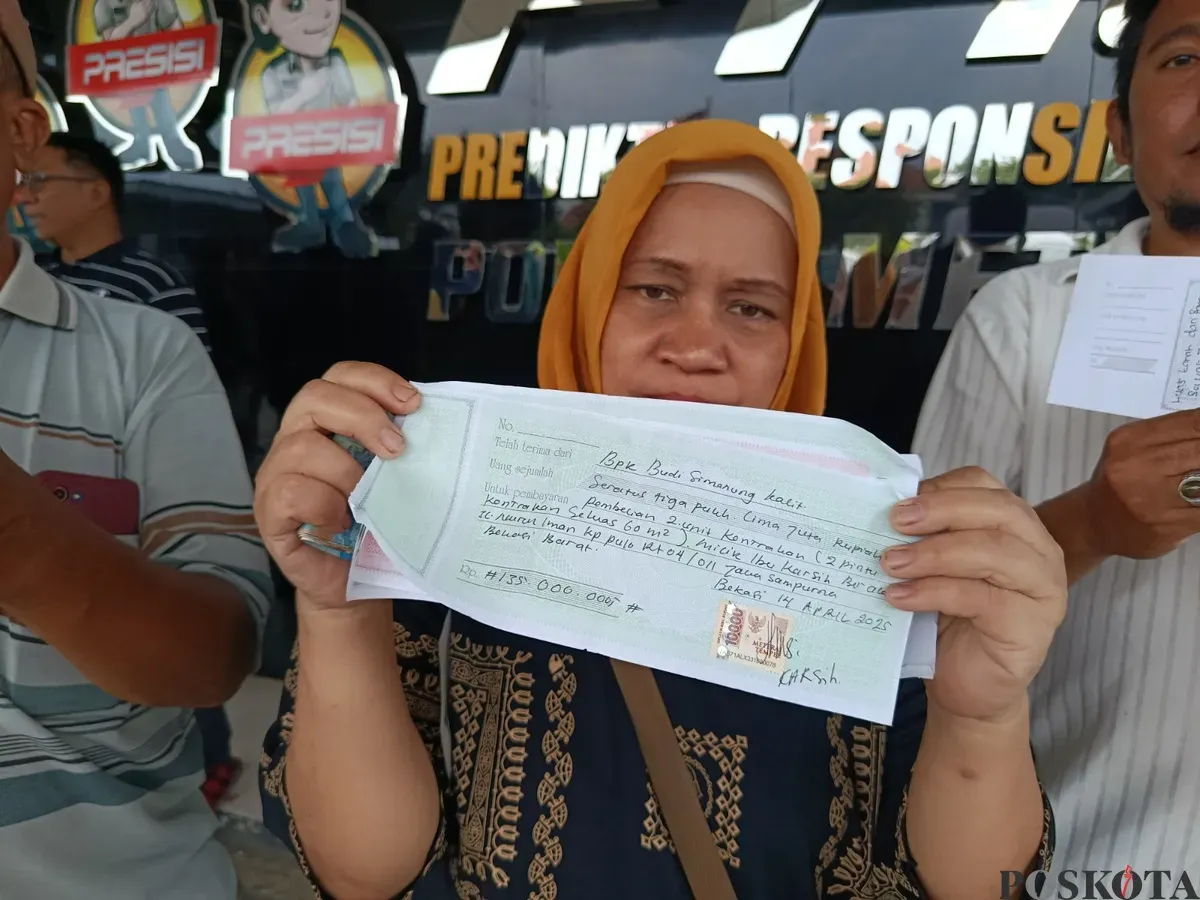 PRESISI
PRESISI
PREDIKTI RESPONSI
No.
Telah terima dari Bpk Budi Simanung kalit
Uang sejumlah Seratus tiga puluh Lima Juta Rupiah
Untuk pembayaran Pembelian 2 unit kontrakan (2 pintu
kontrakan Seluas 60 m²) milik Ibu Karsih
Jl. Nurul Iman kp pulo Rt 04/011 Jaka Sampurna
Bekasi Barat.
Bekasi 14 APRIL 2025
Rp. # 135.000.000,- #
10000
METERAI
TEMPEL
KARSIH
POSKOTA